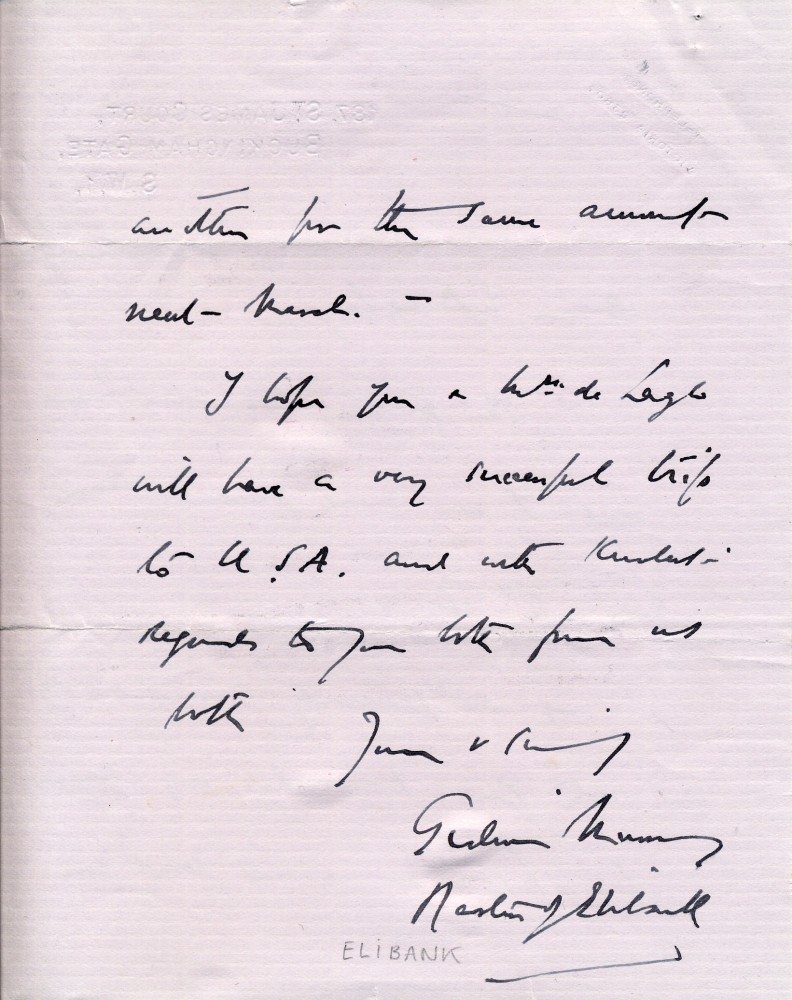 187, ST. JAMES COURT,
BUCKINGHAM GATE,
S.W.1.
another for the same amount
next March. —
I hope you & Mrs. de Laszlo
will have a very successful trip
to U.S.A. and with kindest
regards to you both from us
both
Yours v sincerely
Gideon Murray
Master of Elibank
ELIBANK